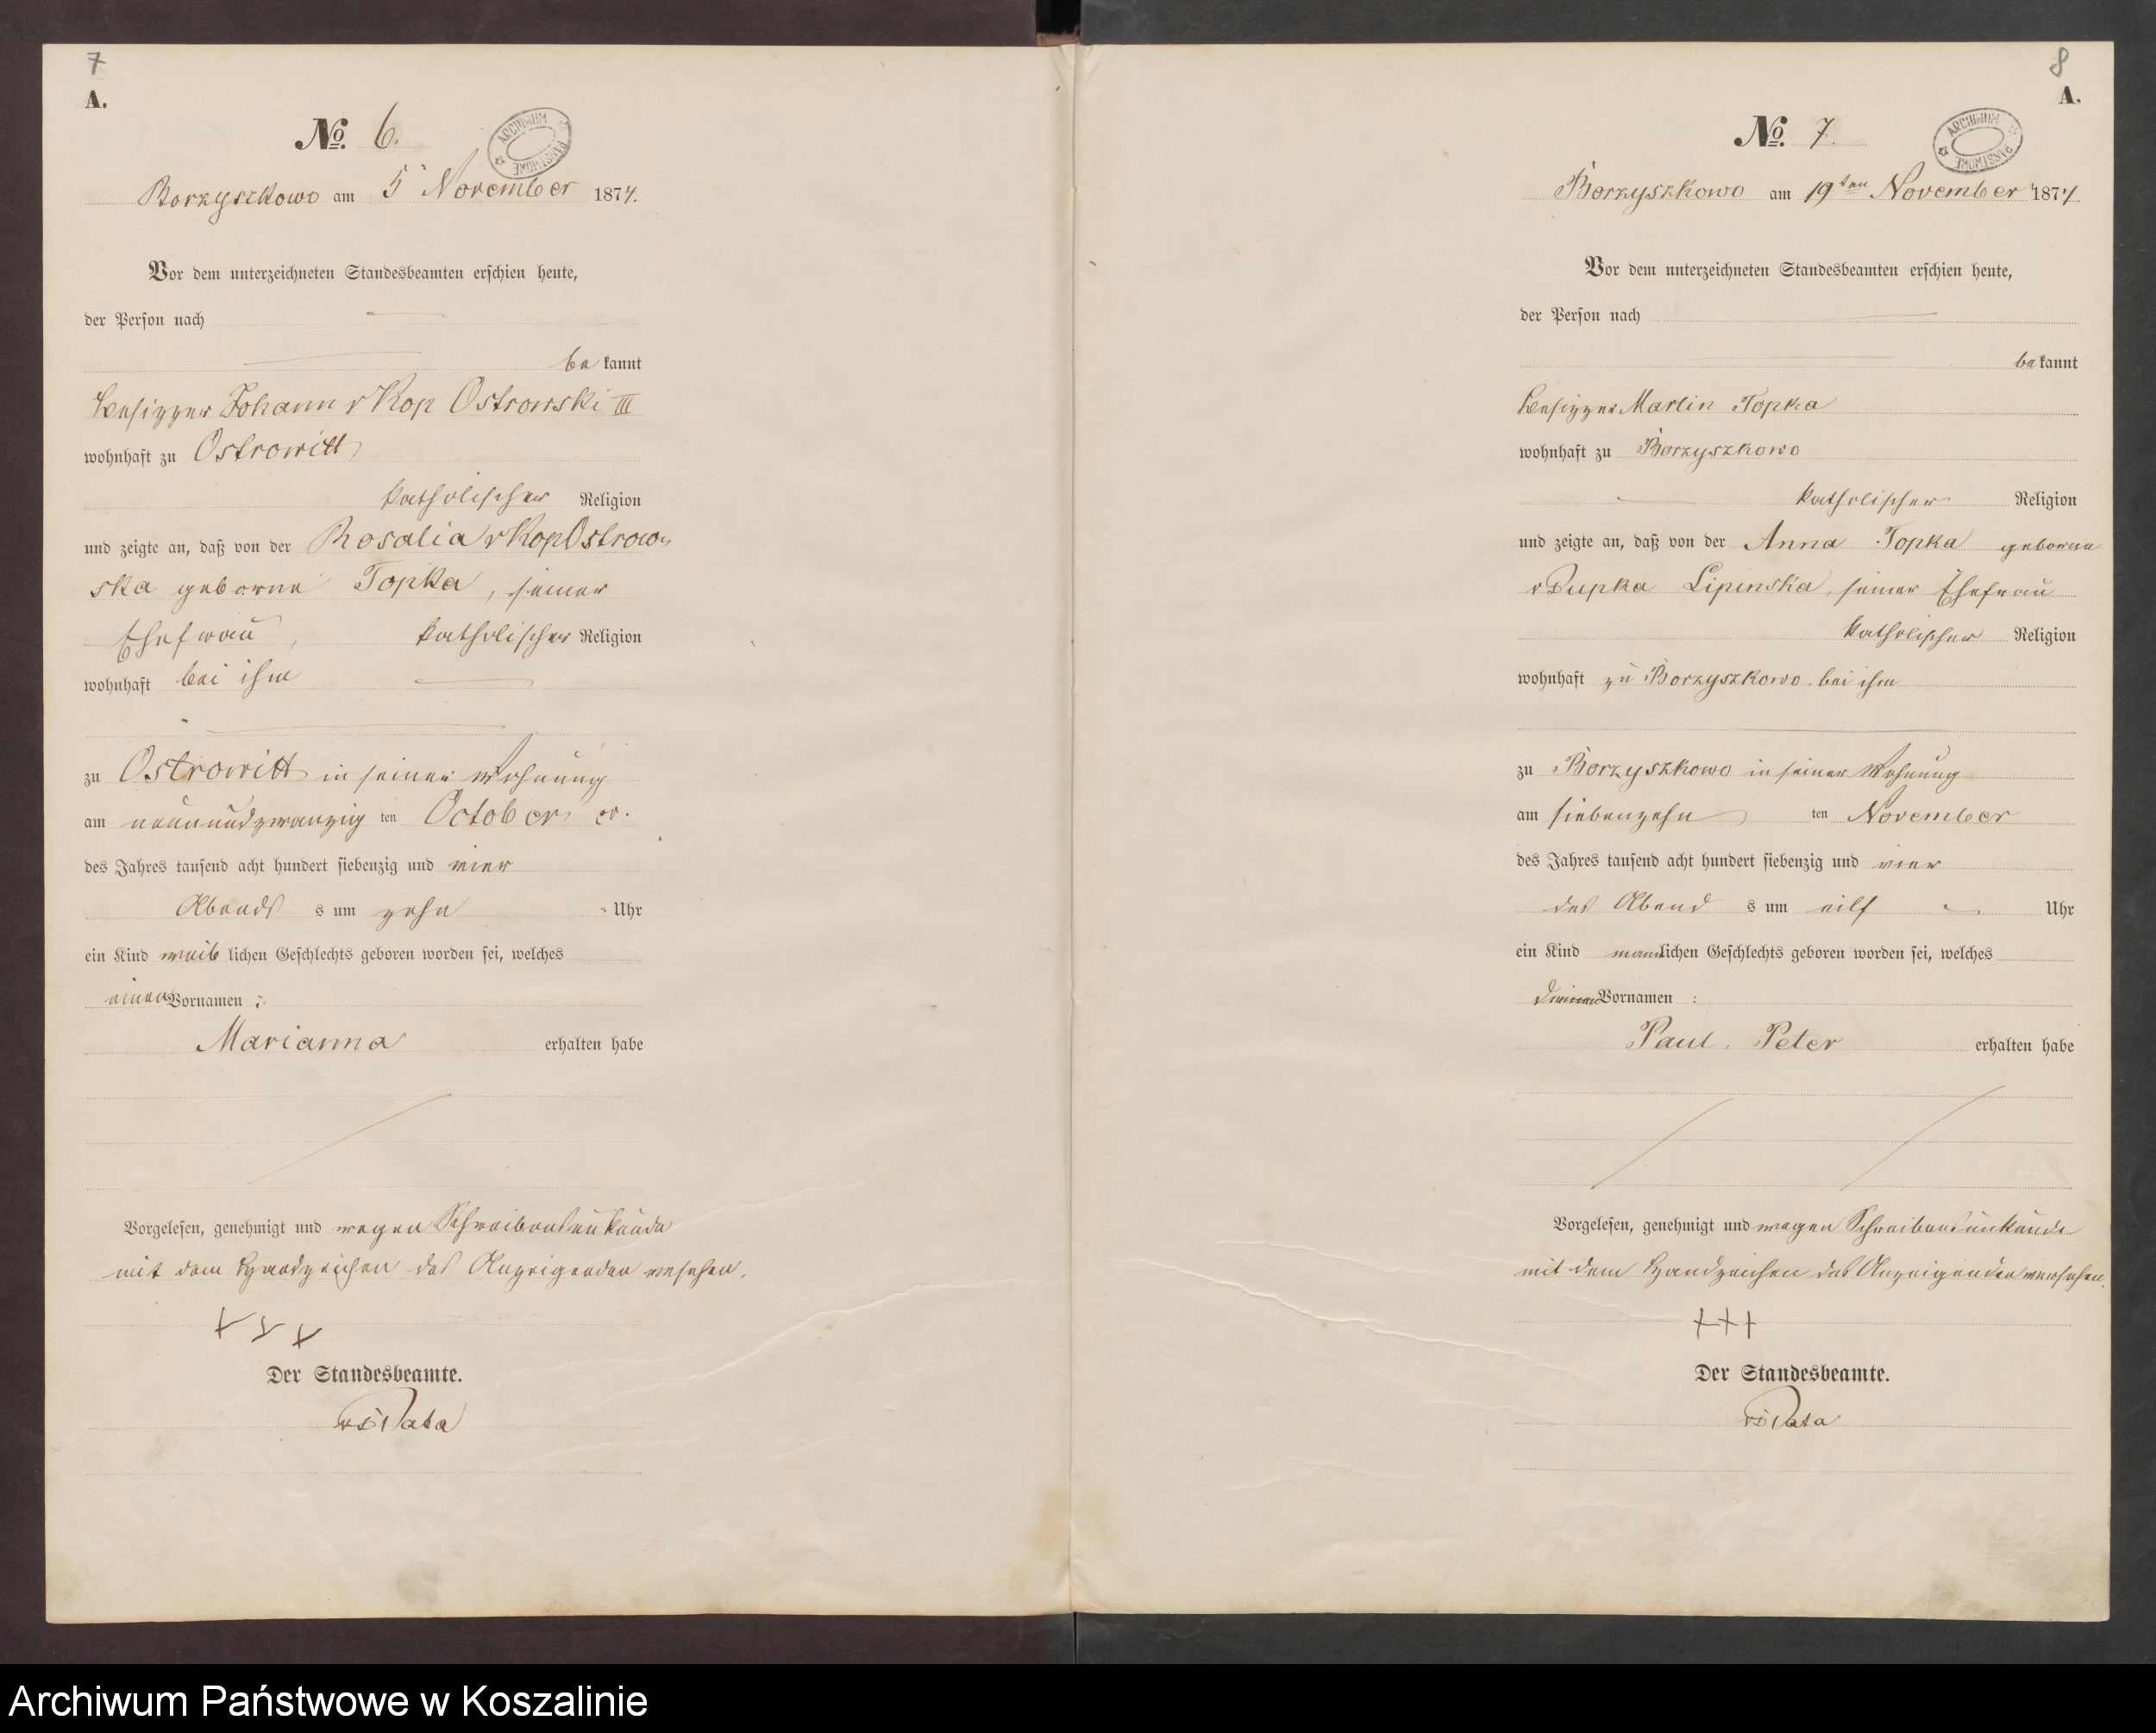 7
A.
No. 6.
ARCHIWUM PAŃSTWOWE
Borzyszkowo am 5 November 1874.
Vor dem unterzeichneten Standesbeamten erschien heute,
der Person nach
be kannt
Besitzer Johann v Kop Ostrowski III
wohnhaft zu Ostrowitt
katholischer Religion
und zeigte an, daß von der Rosalia v Kop Ostrow-
ska geborne Topka, seiner
Ehefrau, katholischer Religion
wohnhaft bei ihm
zu Ostrowitt in seiner Wohnung
am neunundzwanzig ten October cr.
des Jahres tausend acht hundert siebenzig und vier
Abends s um zehn Uhr
ein Kind weib lichen Geschlechts geboren worden sei, welches
einen Vornamen :
Marianna erhalten habe
Vorgelesen, genehmigt und wegen Schreibensunkunde
mit dem Handzeichen des Anzeigenden vesehen.
+ + +
Der Standesbeamte.
8
A.
No. 7.
ARCHIWUM PAŃSTWOWE
Borzyszkowo am 19ten November 1874
Vor dem unterzeichneten Standesbeamten erschien heute,
der Person nach
be kannt
Besitzer Martin Topka
wohnhaft zu Borzyszkowo
katholischer Religion
und zeigte an, daß von der Anna Topka geborne
Lipinska, seiner Ehefrau
katholischer Religion
wohnhaft zu Borzyszkowo bei ihm
zu Borzyszkowo in seiner Wohnung
am siebenzehn ten November
des Jahres tausend acht hundert siebenzig und vier
des Abend s um eilf Uhr
ein Kind mannlichen Geschlechts geboren worden sei, welches
Vornamen :
Paul, Peter erhalten habe
Vorgelesen, genehmigt und wegen Schreibensunkunde
mit dem Handzeichen des Anzeigenden versehen.
+++
Der Standesbeamte.
Archiwum Państwowe w Koszalinie